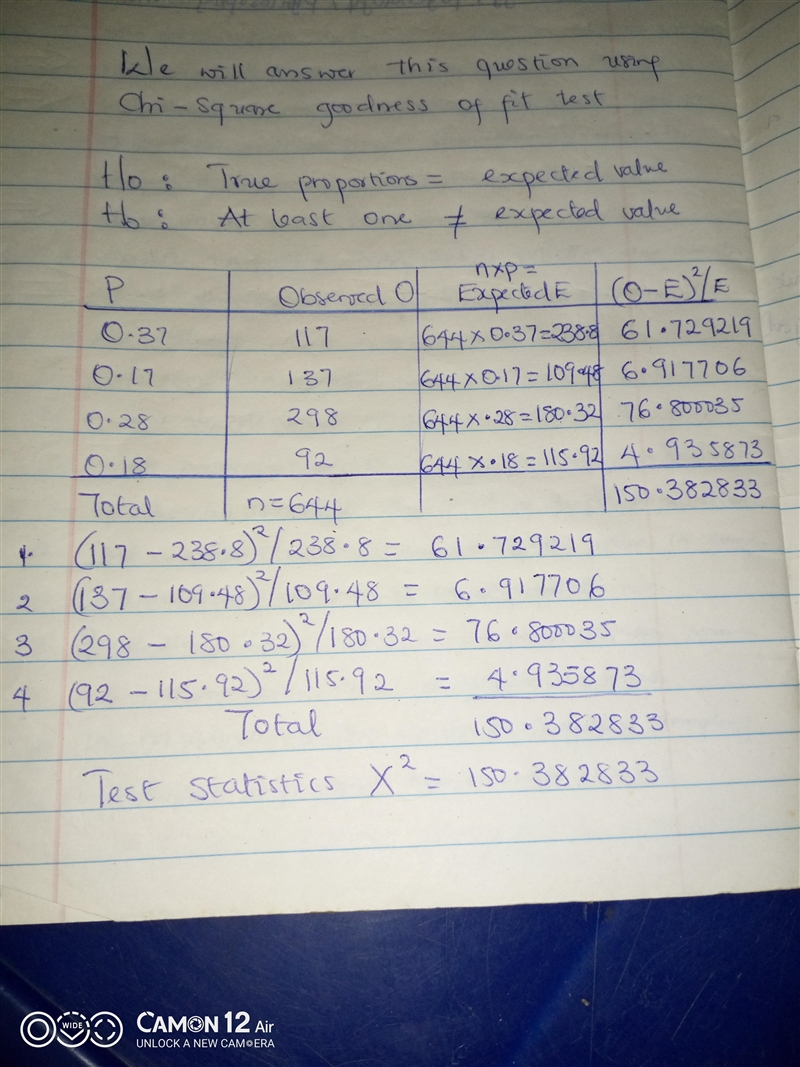 We will answer this question using
Chi-Square goodness of fit test
Ho: True proportions = expected value
Hb: At least one ≠ expected value
P Observed O n×p = Expected E (O-E)²/E
0.37 117 644×0.37=238.8 61.729219
0.17 137 644×0.17=109.48 6.917706
0.28 298 644×.28=180.32 76.800035
0.18 92 644×.18=115.92 4.935873
Total n=644 150.382833
1. (117 - 238.8)²/238.8 = 61.729219
2 (137 - 109.48)²/109.48 = 6.917706
3 (298 - 180.32)²/180.32 = 76.800035
4 (92 - 115.92)²/115.92 = 4.935873
Total 150.382833
Test Statistics X² = 150.382833
WIDE
CAMON 12 Air
UNLOCK A NEW CAMERA